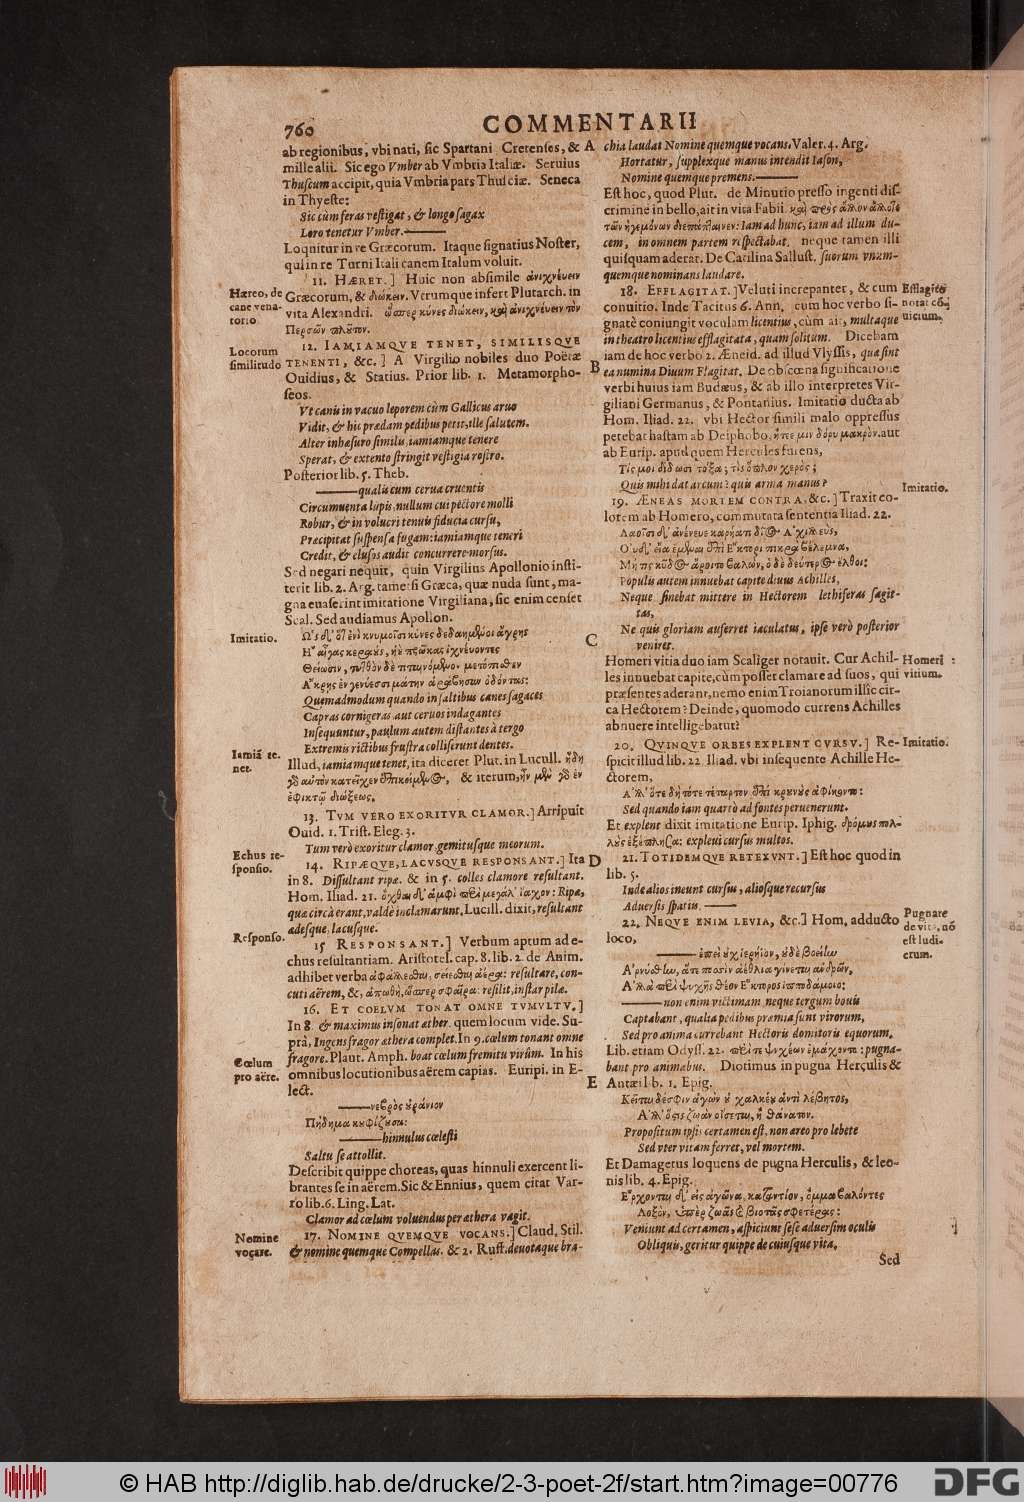 760
COMMENTARII
ab regionibus, vbi nati, sic Spartani Cretenses, &
mille alii. Sic ego Vmber ab Vmbria Italiæ. Seruius
Thuscum accipit, quia Vmbria pars Thusciæ. Seneca
in Thyeste:
Sic cùm feras vestigat, & longo sagax
Loro tenetur Vmber.
Loquitur in re Græcorum. Itaque signatius Noster,
qui in re Turni Itali canem Italum voluit.
11. HÆRET.] Huic non absimile ἀνιχνέυειν
Græcorum, & διώκειν. Vtrumque infert Plutarch. in
vita Alexandri. ὥσπερ κύνες διώκειν, καὶ ἀνιχνέυειν τὸν
Περσῶν πλοῦτον.
12. IAMIAMQVE TENET, SIMILISQVE
TENENTI, &c.] A Virgilio nobiles duo Poëtæ
Ouidius, & Statius. Prior lib. 1. Metamorpho-
seos.
Vt canis in vacuo leporem cùm Gallicus aruo
Vidit, & hic prædam pedibus petit, ille salutem.
Alter inhæsuro similis, iamiamque tenere
Sperat, & extento stringit vestigia rostro.
Posterior lib. 5. Theb.
qualis cum cerua cruentis
Circumuenta lupis, nullum cui pectore molli
Robur, & in volucri tenuis fiducia cursu,
Præcipitat suspensa fugam: iamiamque teneri
Credit, & elusos audit concurrere morsus.
Sed negari nequit, quin Virgilius Apollonio insti-
terit lib. 2. Arg. tametsi Græca, quæ nuda sunt, ma-
gna euaserint imitatione Virgiliana, sic enim censet
Scal. Sed audiamus Apollon.
Ὡς δ' ὅτ' ἐνὶ κνημοῖσι κύνες δεδαημένοι ἄγρης
Ἢ αἶγας κεραοὺς, ἠὲ πρῶκας ἰχνέυοντες
Θείωσιν, τυτθὸν δὲ τιτηνόμενοι μετόπισθεν
Ἄκρης ἐν γενύεσσι μάτην ἀράβησαν ὀδόντας:
Quemadmodum quando in saltibus canes sagaces
Capras cornigeras aut ceruos indagantes
Insequuntur, paulum autem distantes à tergo
Extremis rictibus frustra colliserunt dentes.
Illud, iamiamque tenet, ita diceret Plut. in Lucull. ἤδη
γδ αὐτὸν κατεῖχεν ἐπικείμενος, & iterum, ἦν μὲν γδ ἐν
ἐφικτῷ διώξεως.
13. TVM VERO EXORITVR CLAMOR.] Arripuit
Ouid. 1. Trist. Eleg. 3.
Tum verò exoritur clamor gemitusque meorum.
14. RIPÆQVE, LACVSQVE RESPONSANT.] Ita
in 8. Dissultant ripæ. & in 5. colles clamore resultant.
Hom. Iliad. 21. ὄχθαι δ' ἀμφὶ περὶ μεγάλ' ἴαχον: Ripæ,
quæ circà erant, valdè inclamarunt, Lucill. dixit, resultant
ædesque, lacusque.
15 RESPONSANT.] Verbum aptum ad e-
chus resultantiam. Aristotel. cap. 8. lib. 2. de Anim.
adhibet verba ἀφάλλεσθαι, σείεσθαι ἀέρα: resultare, con-
cuti aërem, &, ἀπωθῇ, ὥσπερ σφαῖρα: resilit, instar pilæ.
16. ET COELVM TONAT OMNE TVMVLTV.]
In 8. & maximus insonat æther. quem locum vide. Su-
prà, Ingens fragor æthera complet. In 9. cœlum tonant omne
fragore. Plaut. Amph. boat cœlum fremitu virûm. In his
omnibus locutionibus aërem capias. Euripi. in E-
lect.
νεβρὸς οὐράνιον
Πήδημα κουφίζουσα:
hinnulus cœlesti
Saltu se attollit.
Describit quippe choreas, quas hinnuli exercent li-
brantes se in aërem. Sic & Ennius, quem citat Var-
ro lib. 6. Ling. Lat.
Clamor ad cœlum voluendus per æthera vagit.
17. NOMINE QVEMQVE VOCANS.] Claud. Stil.
& nomine quemque Compellas. & 2. Ruff. deuotaque bra-
Hæreo, de
cane vena-
torio
Locorum
similitudo
Imitatio.
Iamiã te-
net.
Echus re-
sponsio.
Responso.
Cœlum
pro aëre.
Nomine
vocare.
A
B
C
D
E
chia laudat Nomine quemque vocans. Valer. 4. Arg.
Hortatur, supplexque manus intendit Iason,
Nomine quemque premens.
Est hoc, quod Plut. de Minutio presso ingenti dis-
crimine in bello, ait in vita Fabii. καὶ πρὸς ἄλλον ἄλλοτε
τῶν ἡγεμόνων διεπάπταινεν: Iam ad hunc, iam ad illum du-
cem, in omnem partem respectabat. neque tamen illi
quisquam aderat. De Catilina Sallust. suorum vnum-
quemque nominans laudare.
18. EFFLAGITAT.] Veluti increpanter, & cum
conuitio. Inde Tacitus 6. Ann. cum hoc verbo si-
gnatè coniungit voculam licentius, cùm ait, multaque
in theatro licentius efflagitata, quam solitum. Dicebam
iam de hoc verbo 2. Æneid. ad illud Vlyssis, quæ sint
ea numina Diuum Flagitat. De obscœna significatione
verbi huius iam Budæus, & ab illo interpretes Vir-
giliani Germanus, & Pontanius. Imitatio ducta ab
Hom. Iliad. 22. vbi Hector simili malo oppressus
petebat hastam ab Deiphobo, ᾔτεε μιν δόρυ μακρὸν. aut
ab Eurip. apud quem Hercules furens,
Τίς μοι δίδωσι τόξα; τίς ὅπλον χερός;
Quis mihi dat arcum? quis arma manus?
19. ÆNEAS MORTEM CONTRA, &c.] Traxit co-
lorem ab Homero, commutata sententia Iliad. 22.
Λαοῖσι δ' ἀνένευε καρήατι δῖος Ἀχιλλεύς,
Οὐδ' εἴα ἐμέναι ἐπὶ Ἕκτορι πικρὰ βέλεμνα,
Μή τις κῦδος ἄροιτο βαλών, ὁ δὲ δεύτερος ἔλθοι:
Populis autem innuebat capite diuus Achilles,
Neque sinebat mittere in Hectorem lethiferas sagit-
tas,
Ne quis gloriam auferret iaculatus, ipse verò posterior
veniret.
Homeri vitia duo iam Scaliger notauit. Cur Achil-
les innuebat capite, cùm posset clamare ad suos, qui
præsentes aderant, nemo enim Troianorum illîc cir-
ca Hectorem? Deinde, quomodo currens Achilles
abnuere intelligebatur?
20. QVINQVE ORBES EXPLENT CVRSV.] Re-
spicit illud lib. 22. Iliad. vbi insequente Achille He-
ctorem,
Ἀλλ' ὅτε δὴ τότε τέταρτον ἐπὶ κρουνοὺς ἀφίκοντο:
Sed quando iam quartò ad fontes peruenerunt.
Et explent dixit imitatione Eurip. Iphig. δρόμους πολ-
λοὺς ἐξέπλησα: expleui cursus multos.
21. TOTIDEMQVE RETEXVNT.] Est hoc quod in
lib. 5.
Inde alios ineunt cursus, aliosque recursus
Aduersis spatiis.
22. NEQVE ENIM LEVIA, &c.] Hom. adducto
loco,
ἐπεὶ οὐχ ἱερήιον, οὐδὲ βοείην
Ἀρνύσθην, ἅτε ποσσὶν ἀέθλια γίνεται ἀνδρῶν,
Ἀλλὰ περὶ ψυχῆς θέον Ἕκτορος ἱπποδάμοιο:
non enim victimam, neque tergum bouis
Captabant, qualia pedibus præmia sunt virorum,
Sed pro anima currebant Hectoris domitoris equorum.
Lib. etiam Odyss. 22. περί τε ψυχέων ἐμάχοντο: pugna-
bant pro animabus. Diotimus in pugna Herculis &
Antæi lib. 1. Epig.
Κεῖται δέ σφιν ἀγὼν οὐ χαλκέου ἀντὶ λέβητος,
Ἀλλ' ὅστις ζωὰν οἴσεται, ἢ θάνατον.
Propositum ipsis certamen est, non æreo pro lebete
Sed vter vitam ferret, vel mortem.
Et Damagetus loquens de pugna Herculis, & leo-
nis lib. 4. Epig.
Ἔρχονται δ' εἰς ἀγῶνα καταντίον, ὄμμα βαλόντες
Λοξὸν, ὑπὲρ ζωᾶς & βιοτᾶς σφετέρας:
Veniunt ad certamen, aspiciunt sese aduersim oculis
Obliquis, geritur quippe de cuiusque vita.
Sed
Efflagito
nota: cõ-
uicium.
Imitatio.
Homeri
vitium.
Imitatio.
Pugnare
de vita, nõ
est ludi-
crum.
© HAB http://diglib.hab.de/drucke/2-3-poet-2f/start.htm?image=00776
DFG